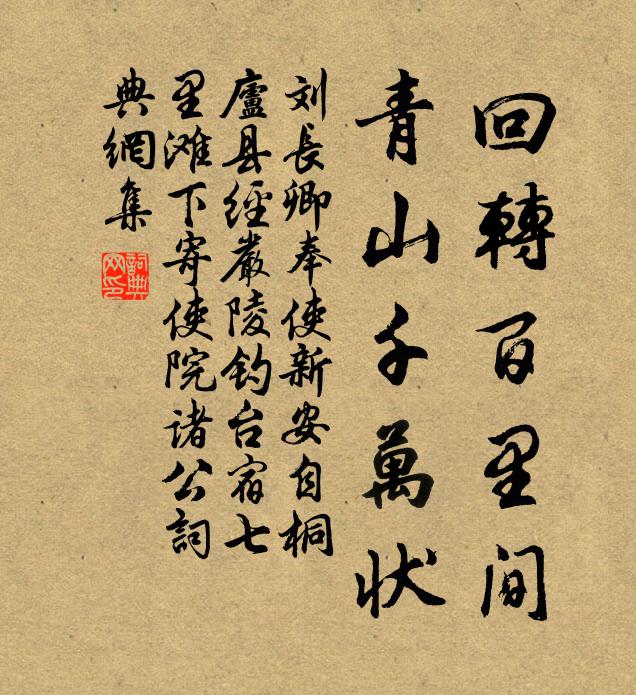 回轉百里间
青山千萬状
刘長卿奉使新安自桐
廬县經嚴陵钓台宿七
里滩下寄使院诸公詞
典網集
詞典
网印